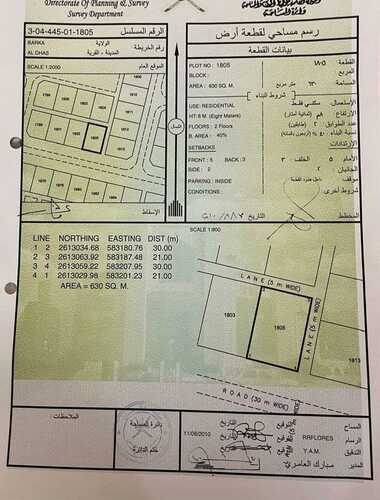 Directorate Of Planning & Survey
Survey Department
رسم مساحي لقطعة أرض
3-04-445-01-1805
الرقم المسلسل
بيانات القطعة
BARKA
الولاية
رقم الخريطة
AL DHAS
المدينة - القرية
SCALE 1:2000
الموقع العام
PLOT NO : 1805
القطعة ١٨٠٥
BLOCK :
المربع
AREA : 630 SQ. M.
٦٣٠ متر مربع
المساحة
شروط البناء
USE: RESIDENTIAL
الإستعمال سكني فقط
HT: 8 M. (Eight Meters)
الإرتفاع
FLOORS : 2 Floors
عدد الطوابق ٢ (طابقين)
B. AREA: 40%
نسبة البناء ٤٠٪
SETBACKS
الإرتدادات
FRONT : 5 BACK : 3
الأمام ٥ الخلف ٣
SIDE : 2
الجانب ٢
PARKING : INSIDE
موقف
CONDITIONS :
شروط أخرى
1805
الإسقاط
الشمال
التاريخ
المخطط
SCALE 1:500
LINE NORTHING EASTING DIST (m)
1 2 2613034.68 583180.76 30.00
2 3 2613063.92 583187.48 21.00
3 4 2613059.22 583207.95 30.00
4 1 2613029.98 583201.23 21.00
AREA = 630 SQ. M.
LANE (5 m WIDE)
1803
1805
LANE (5 m WIDE)
1813
ROAD (30 m WIDE)
الملاحظات:
دائرة المساحة
ختم الدائرة
11/08/2010
التاريخ
RRFLORES
المساح
الرسام
Y.A.M.
التدقيق
مبارك العامري
المدير